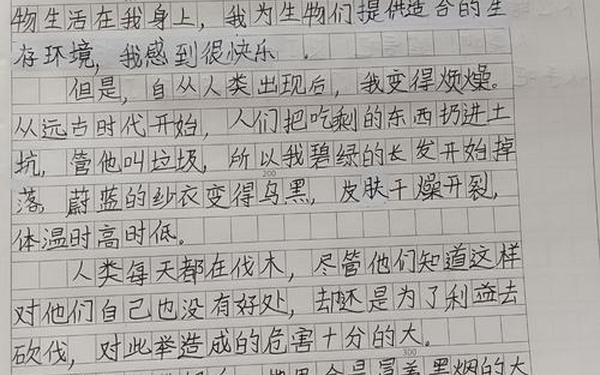 物生活在我身上，我为生物们提供适合的生
存环境，我感到很快乐。
但是，自从人类出现后，我变得烦燥。
从远古时代开始，人们把吃剩的东西扔进土
坑，管他叫垃圾，所以我碧绿的长发开始掉
落。蔚蓝的纱衣变得乌黑，皮肤干燥开裂，
200
体温时高时低。
人类每天都在伐木，尽管他们知道这样
对他们自己也没有好处，却还是为了利益去
砍伐，对此举造成的危害十分的大。
300
会是冒着黑烟的大